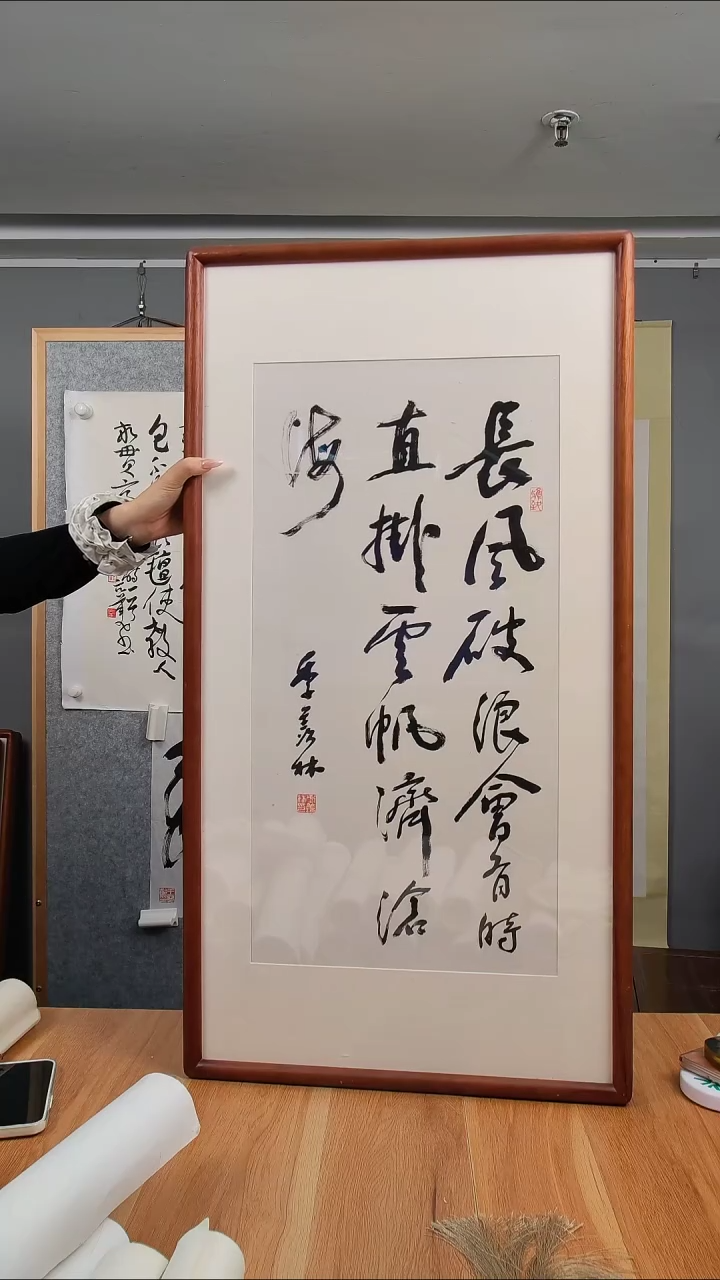 長風破浪會有時
直掛雲帆濟滄
海
季羨林
使教人